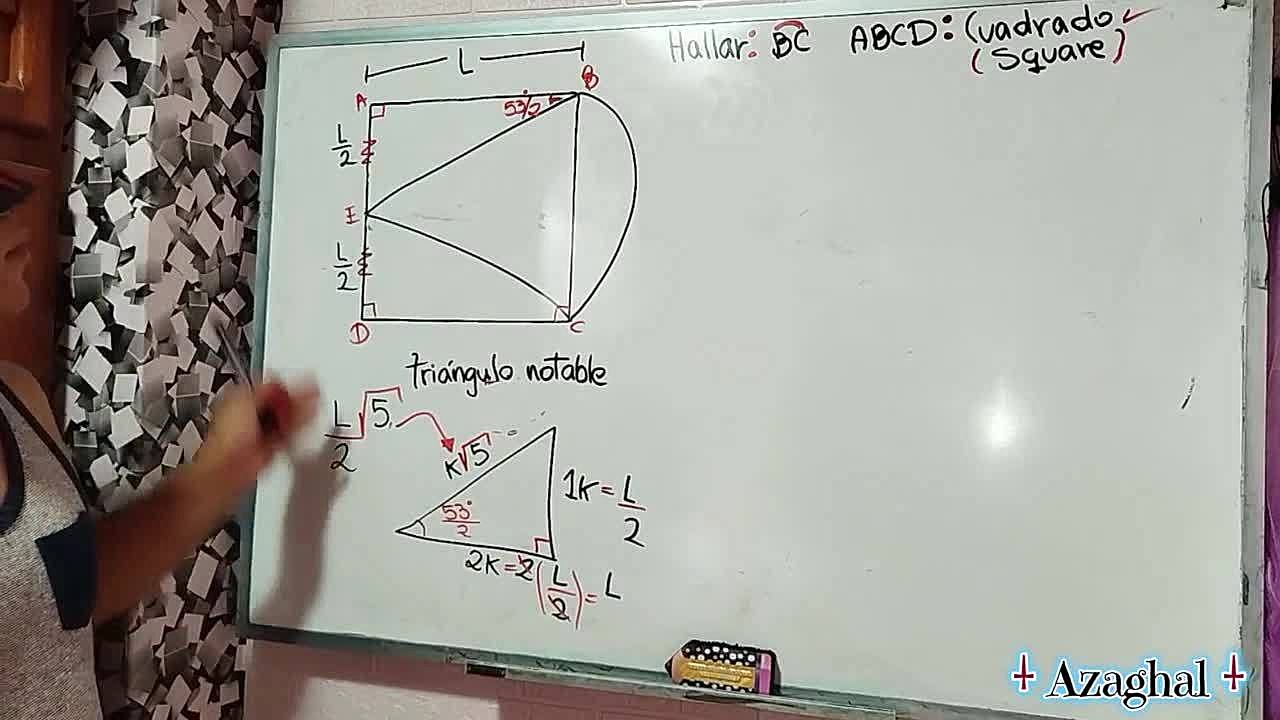 Hallar: BC ABCD: Cuadrado
(Square)
L
A
B
53°/2
L/2
E
L/2
D
C
triángulo notable
L/2 √5
K√5
53°/2
1K = L/2
2K = 2(L/2) = L
Azaghal